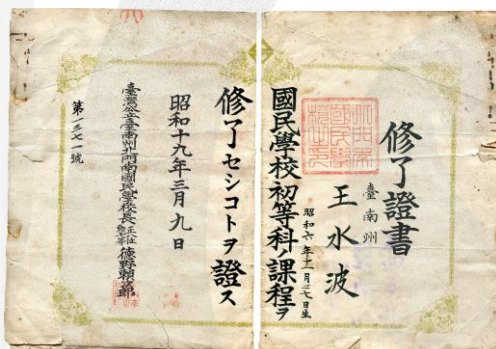 修了證書
臺南州
王水波
昭和六年十二月二七日生
國民學校初等科ノ課程ヲ
修了セシコトヲ證ス
昭和十九年三月九日
臺灣公立臺南州北門南國民學校長 德野賴次郎
第一三七一號